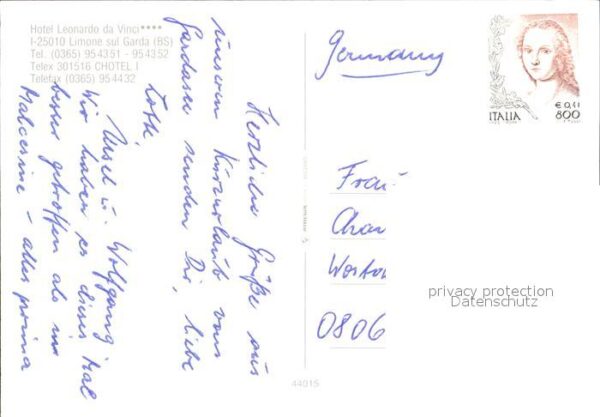 Hotel Leonardo da Vinci****
I-25010 Limone sul Garda (BS)
Tel. (0365) 954351 - 954352
Telex 301516 CHOTEL I
Telefax (0365) 954432
Herzliche Grüße aus
unserem Kurzurlaub vom
Gardasee senden Dir, liebe
Lotti,
Ursel u. Wolfgang
Wir haben es dieses Mal
besser getroffen als in
Malcesine - alles prima
Germany
Frau
Char
0806
€ 0,41
ITALIA 800
privacy protection
Datenschutz
44015